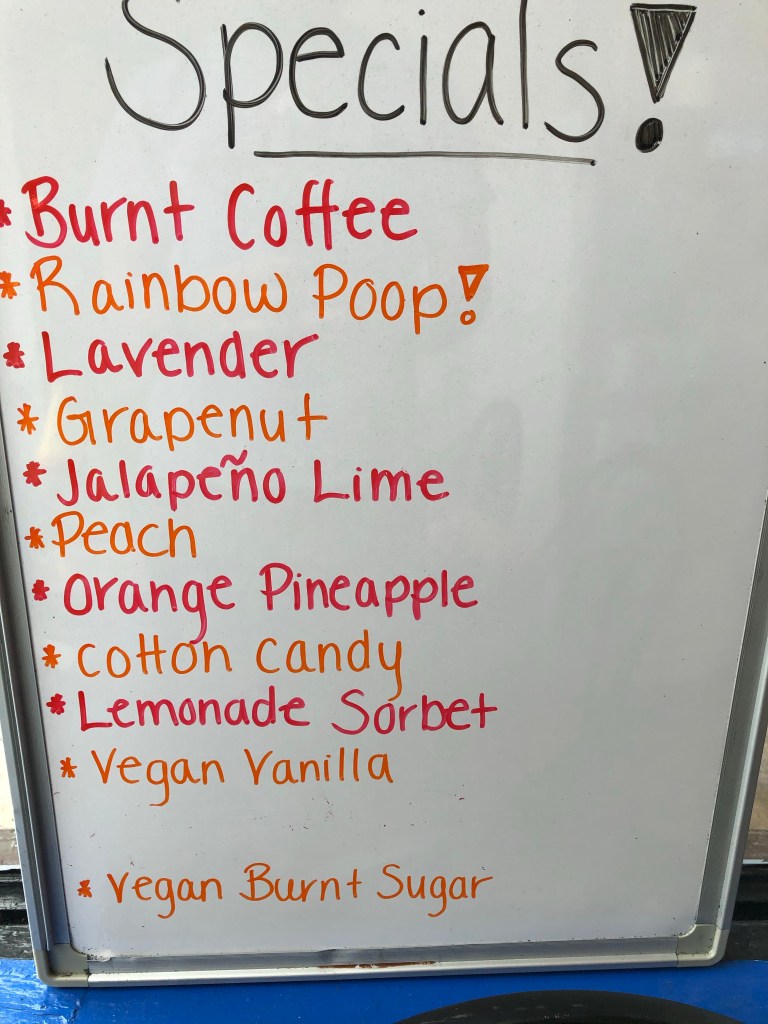 Specials!
* Burnt Coffee
* Rainbow Poop!
* Lavender
* Grapenut
* Jalapeño Lime
* Peach
* Orange Pineapple
* Cotton Candy
* Lemonade Sorbet
* Vegan Vanilla
* Vegan Burnt Sugar